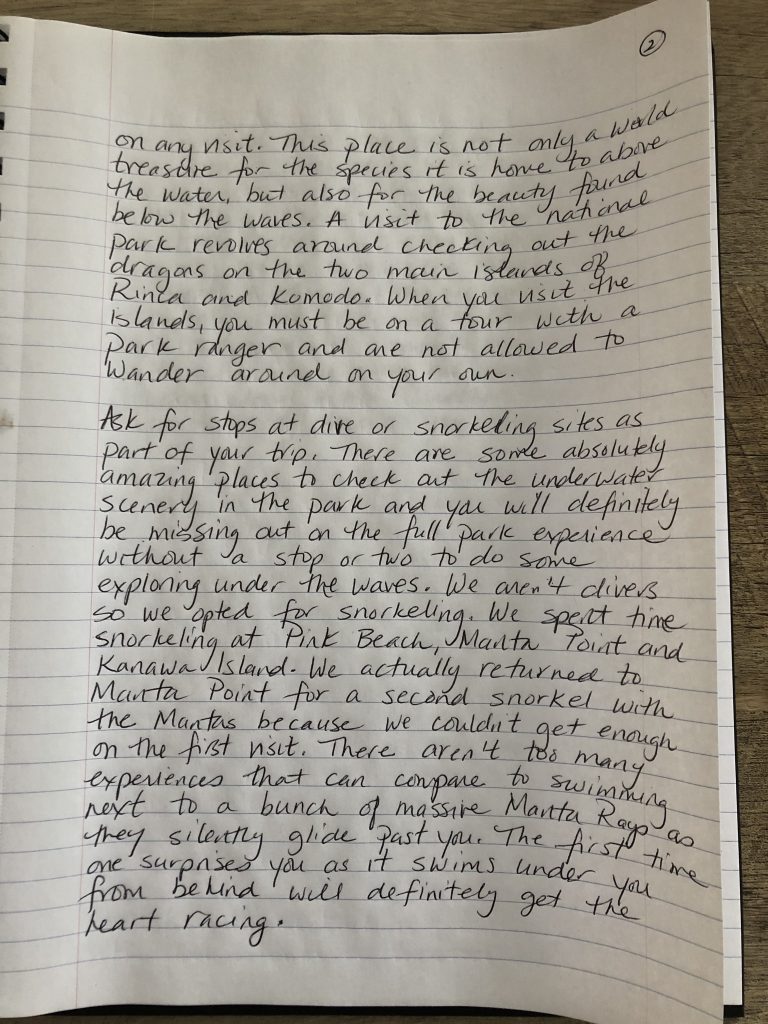 2
on any visit. This place is not only a world
treasure for the species it is home to above
the water, but also for the beauty found
below the waves. A visit to the national
park revolves around checking out the
dragons on the two main islands of
Rinca and Komodo. When you visit the
islands, you must be on a tour with a
park ranger and are not allowed to
wander around on your own.
Ask for stops at dive or snorkeling sites as
part of your trip. There are some absolutely
amazing places to check out the underwater
scenery in the park and you will definitely
be missing out on the full park experience
without a stop or two to do some
exploring under the waves. We aren't divers
so we opted for snorkeling. We spent time
snorkeling at Pink Beach, Manta Point and
Kanawa Island. We actually returned to
Manta Point for a second snorkel with
the Mantas because we couldn't get enough
on the first visit. There aren't too many
experiences that can compare to swimming
next to a bunch of massive Manta Rays as
they silently glide past you. The first time
one surprises you as it swims under you
from behind will definitely get the
heart racing.